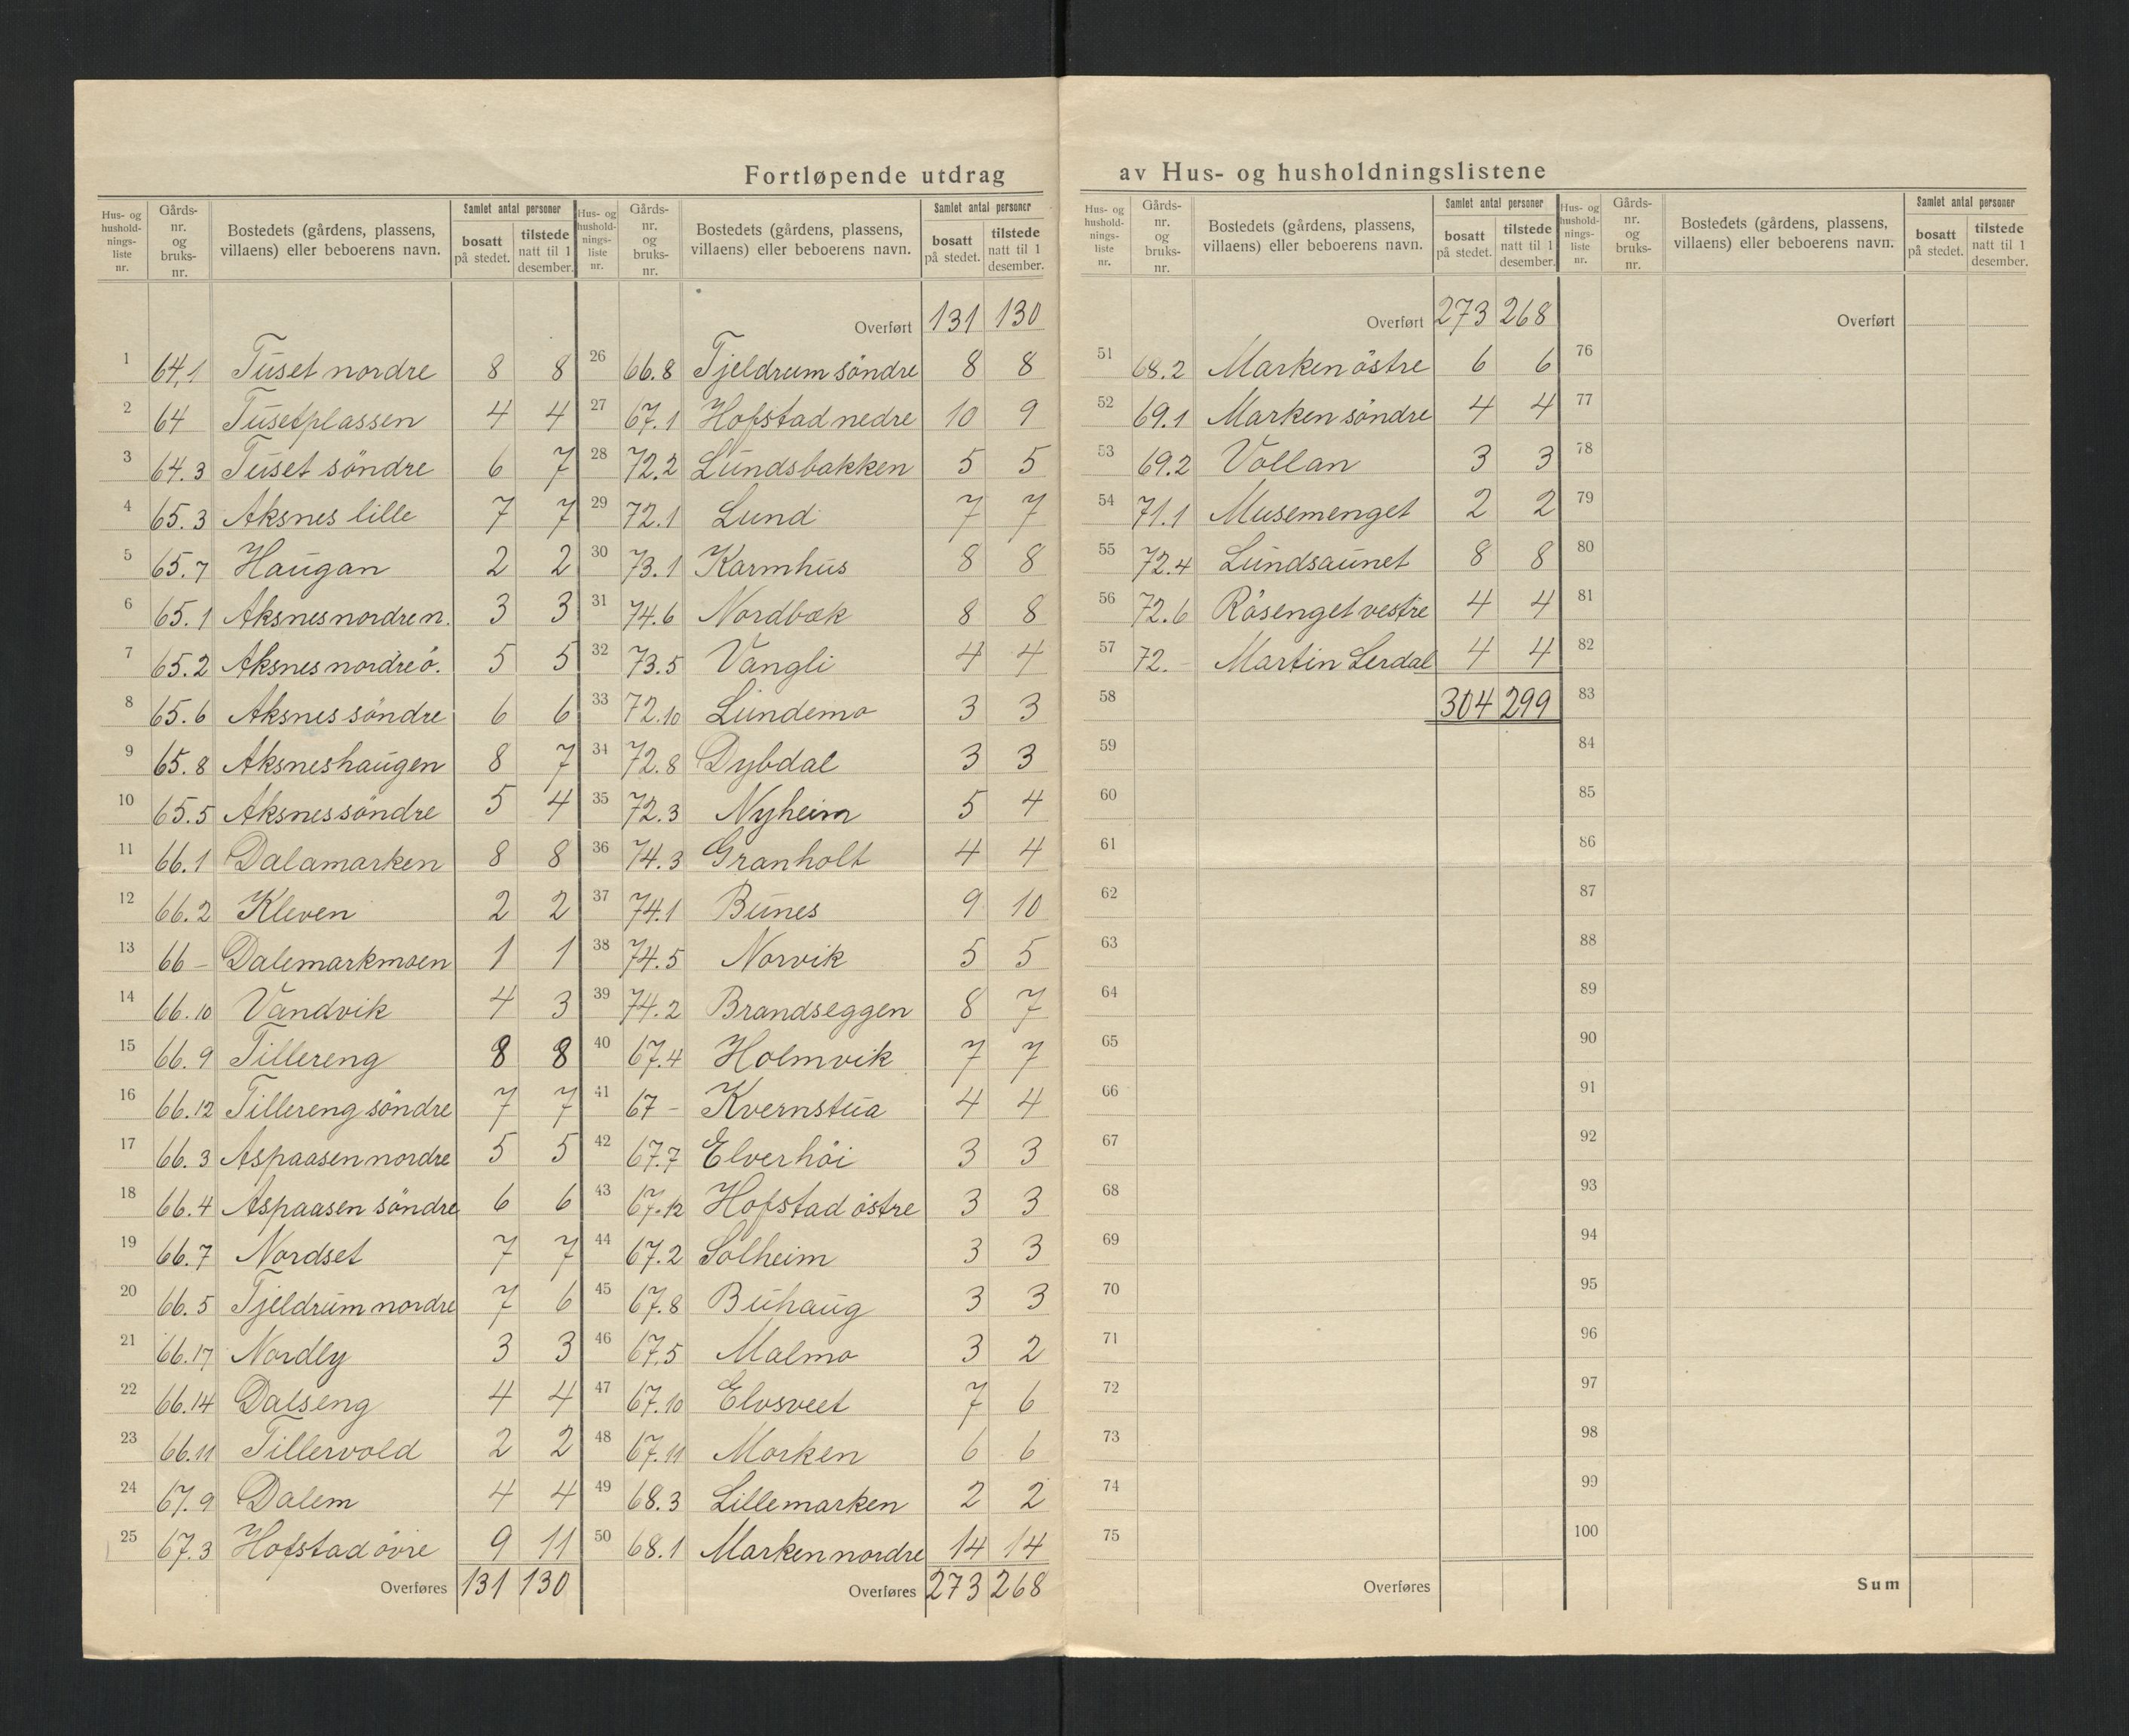 Fortløpende utdrag av Hus- og husholdningslistene
Hus- og hushold-nings-liste nr. Gårds-nr. og bruks-nr. Bostedets (gårdens, plassens, villaens) eller beboerens navn. Samlet antal personer bosatt på stedet. tilstede natt til 1 desember.
1 64,1 Tuset nordre 8 8
2 64 Tusetplassen 4 4
3 64.3 Tuset söndre 6 7
4 65.3 Aksnes lille 7 7
5 65.7 Haugan 2 2
6 65.1 Aksnes nordre n. 3 3
7 65.2 Aksnes nordre ö. 5 5
8 65.6 Aksnes söndre 6 6
9 65.8 Aksneshaugen 8 7
10 65.5 Aksnes söndre 5 4
11 66.1 Dalamarken 8 8
12 66.2 Kleven 2 2
13 66 - Dalemarkmoen 1 1
14 66.10 Vandvik 4 3
15 66.9 Tillereng 8 8
16 66.12 Tillereng söndre 7 7
17 66.3 Aspaasen nordre 5 5
18 66.4 Aspaasen söndre 6 6
19 66.7 Nordset 7 7
20 66.5 Tjeldrum nordre 7 6
21 66.17 Nordly 3 3
22 66.14 Dalseng 4 4
23 66.11 Tillervold 2 2
24 67.9 Dalem 4 4
25 67.3 Hofstad övre 9 11
Overføres 131 130
Hus- og hushold-nings-liste nr. Gårds-nr. og bruks-nr. Bostedets (gårdens, plassens, villaens) eller beboerens navn. Samlet antal personer bosatt på stedet. tilstede natt til 1 desember.
Overført 131 130
26 66.8 Tjeldrum söndre 8 8
27 67.1 Hofstad nedre 10 9
28 72.2 Lundsbakken 5 5
29 72.1 Lund 7 7
30 73.1 Karmhus 8 8
31 74.6 Nordbæk 8 8
32 73.5 Vangli 4 4
33 72.10 Lundemo 3 3
34 72.8 Dybdal 3 3
35 72.3 Nyheim 5 4
36 74.3 Granholt 4 4
37 74.1 Bunes 9 10
38 74.5 Norvik 5 5
39 74.2 Brandseggen 8 7
40 67.4 Holmvik 7 7
41 67 - Kvernstua 4 4
42 67.7 Elverhöi 3 3
43 67.12 Hofstad östre 3 3
44 67.2 Solheim 3 3
45 67.8 Buhaug 3 3
46 67.5 Malmo 3 2
47 67.10 Elvsveet 7 6
48 67.11 Morken 6 6
49 68.3 Lillemarken 2 2
50 68.1 Marken nordre 14 14
Overføres 273 268
Hus- og hushold-nings-liste nr. Gårds-nr. og bruks-nr. Bostedets (gårdens, plassens, villaens) eller beboerens navn. Samlet antal personer bosatt på stedet. tilstede natt til 1 desember.
Overført 273 268
51 68.2 Marken östre 6 6
52 69.1 Marken söndre 4 4
53 69.2 Vollan 3 3
54 71.1 Musemenget 2 2
55 72.4 Lundsaunet 8 8
56 72.6 Rösenget vestre 4 4
57 72. - Martin Lerdal 4 4
58 304 299
59
60
61
62
63
64
65
66
67
68
69
70
71
72
73
74
75
Overføres
Hus- og hushold-nings-liste nr. Gårds-nr. og bruks-nr. Bostedets (gårdens, plassens, villaens) eller beboerens navn. Samlet antal personer bosatt på stedet. tilstede natt til 1 desember.
Overført
76
77
78
79
80
81
82
83
84
85
86
87
88
89
90
91
92
93
94
95
96
97
98
99
100
Sum